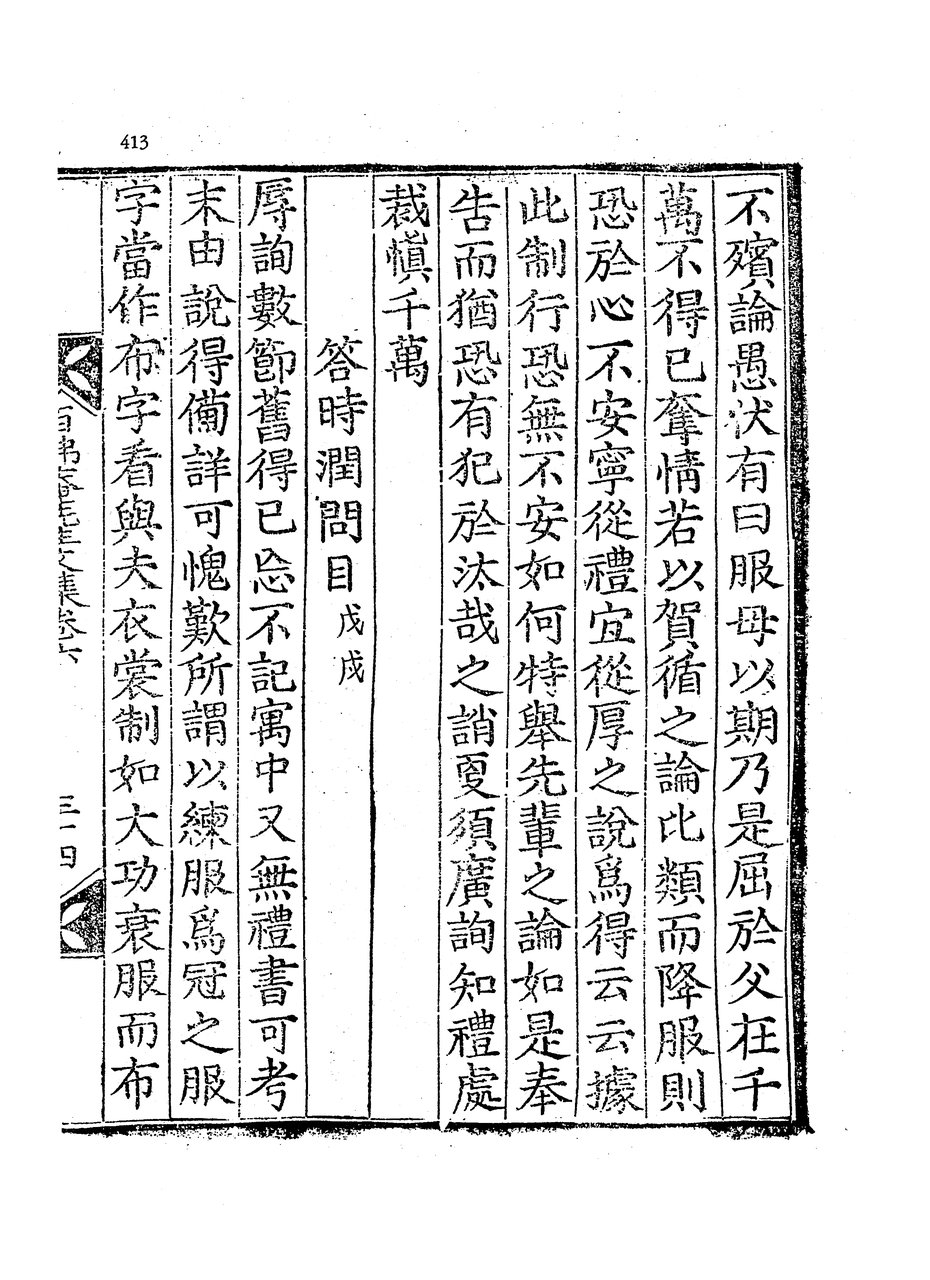 413
不殯論愚伏有曰服母以期乃是屈於父在千
萬不得已奪情若以賀循之論比類而降服則
恐於心不安寧從禮宜從厚之說爲得云云據
此制行恐無不安如何特舉先輩之論如是奉
告而猶恐有犯於汰哉之誚更須廣詢知禮處
裁愼千萬
答時潤問目戊戌
辱詢數節舊得已忘不記寓中又無禮書可考
末由說得備詳可愧歎所謂以練服爲冠之服
字當作布字看與夫衣裳制如大功衰服而布
百弗菴先生文集卷六
三十四